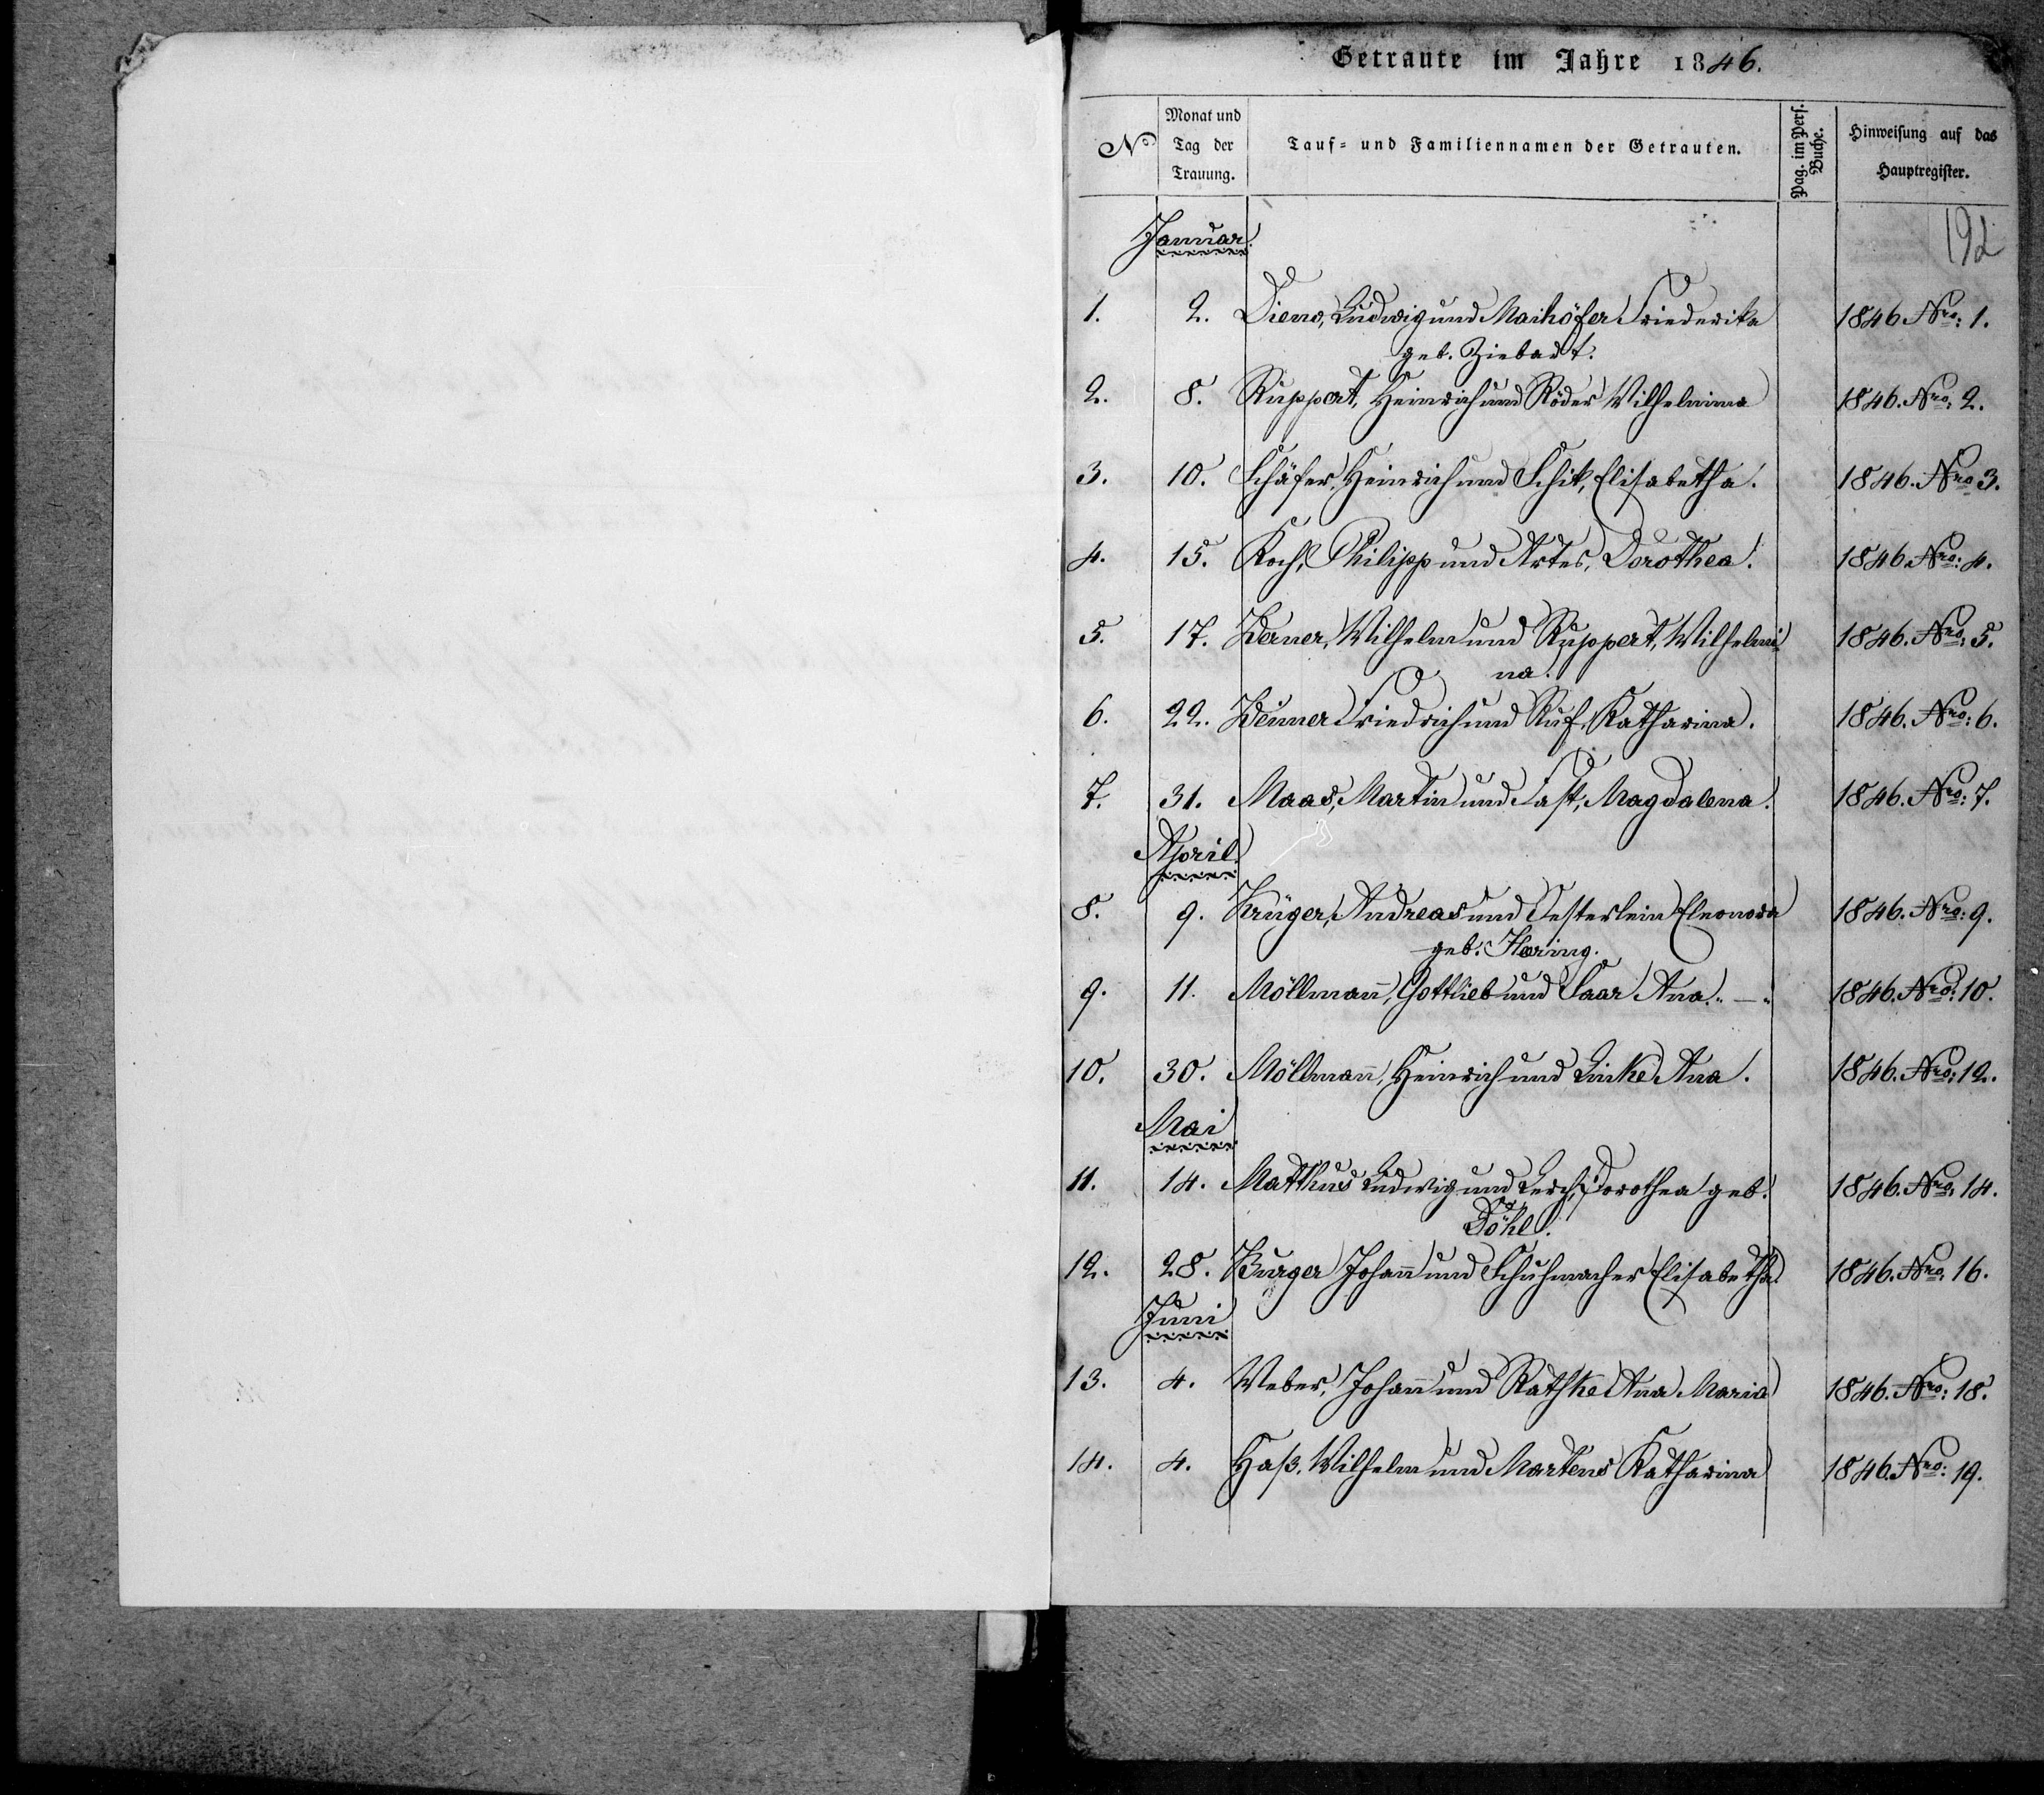 Getraute im Jahre 1846.
No
Monat und
Tag der
Trauung.
Tauf- und Familiennamen der Getrauten.
Pag. im Pers.
Buche.
Hinweisung auf das
Hauptregister.
192
Januar.
1. 2. Ludwig und Maihöfer Friederika 1846 Nro: 1.
geb. Ziebart.
2. 8. Ruppert, Heinrich und Röder Wilhelmina 1846. Nro: 2.
3. 10. Schäfer, Heinrich und Schik, Elisabetha. 1846. Nro 3.
4. 15. Koch, Philipp und Artes, Dorothea. 1846. Nro: 4.
5. 17. Zerner, Wilhelm und Ruppert, Wilhelmi- 1846. Nro: 5.
na.
6. 22. Friedrich und Ruf, Katharina. 1846. Nro: 6.
7. 31. Maas, Martin und Fast, Magdalena. 1846. Nro: 7.
April.
8. 9. Krüger, Andreas und Oesterlein Eleonora 1846. Nro: 9.
geb. Hering.
9. 11. Möllmann, Gottlieb und Saar Ana. 1846. Nro: 10.
10. 30. Möllmann, Heinrich und Linke Ana. 1846. Nro: 12.
Mai
11. 14. Matthus Ludwig und Lerch, Dorothea geb. 1846. Nro: 14.
Döhl.
12. 28. Burger Johann und Schuhmacher Elisabetha. 1846. Nro: 16.
Juni
13. 4. Weber, Johann und Rathke Ana Maria 1846. Nro: 18.
14. 4. Haß, Wilhelm und Martens Katharina 1846. Nro: 19.